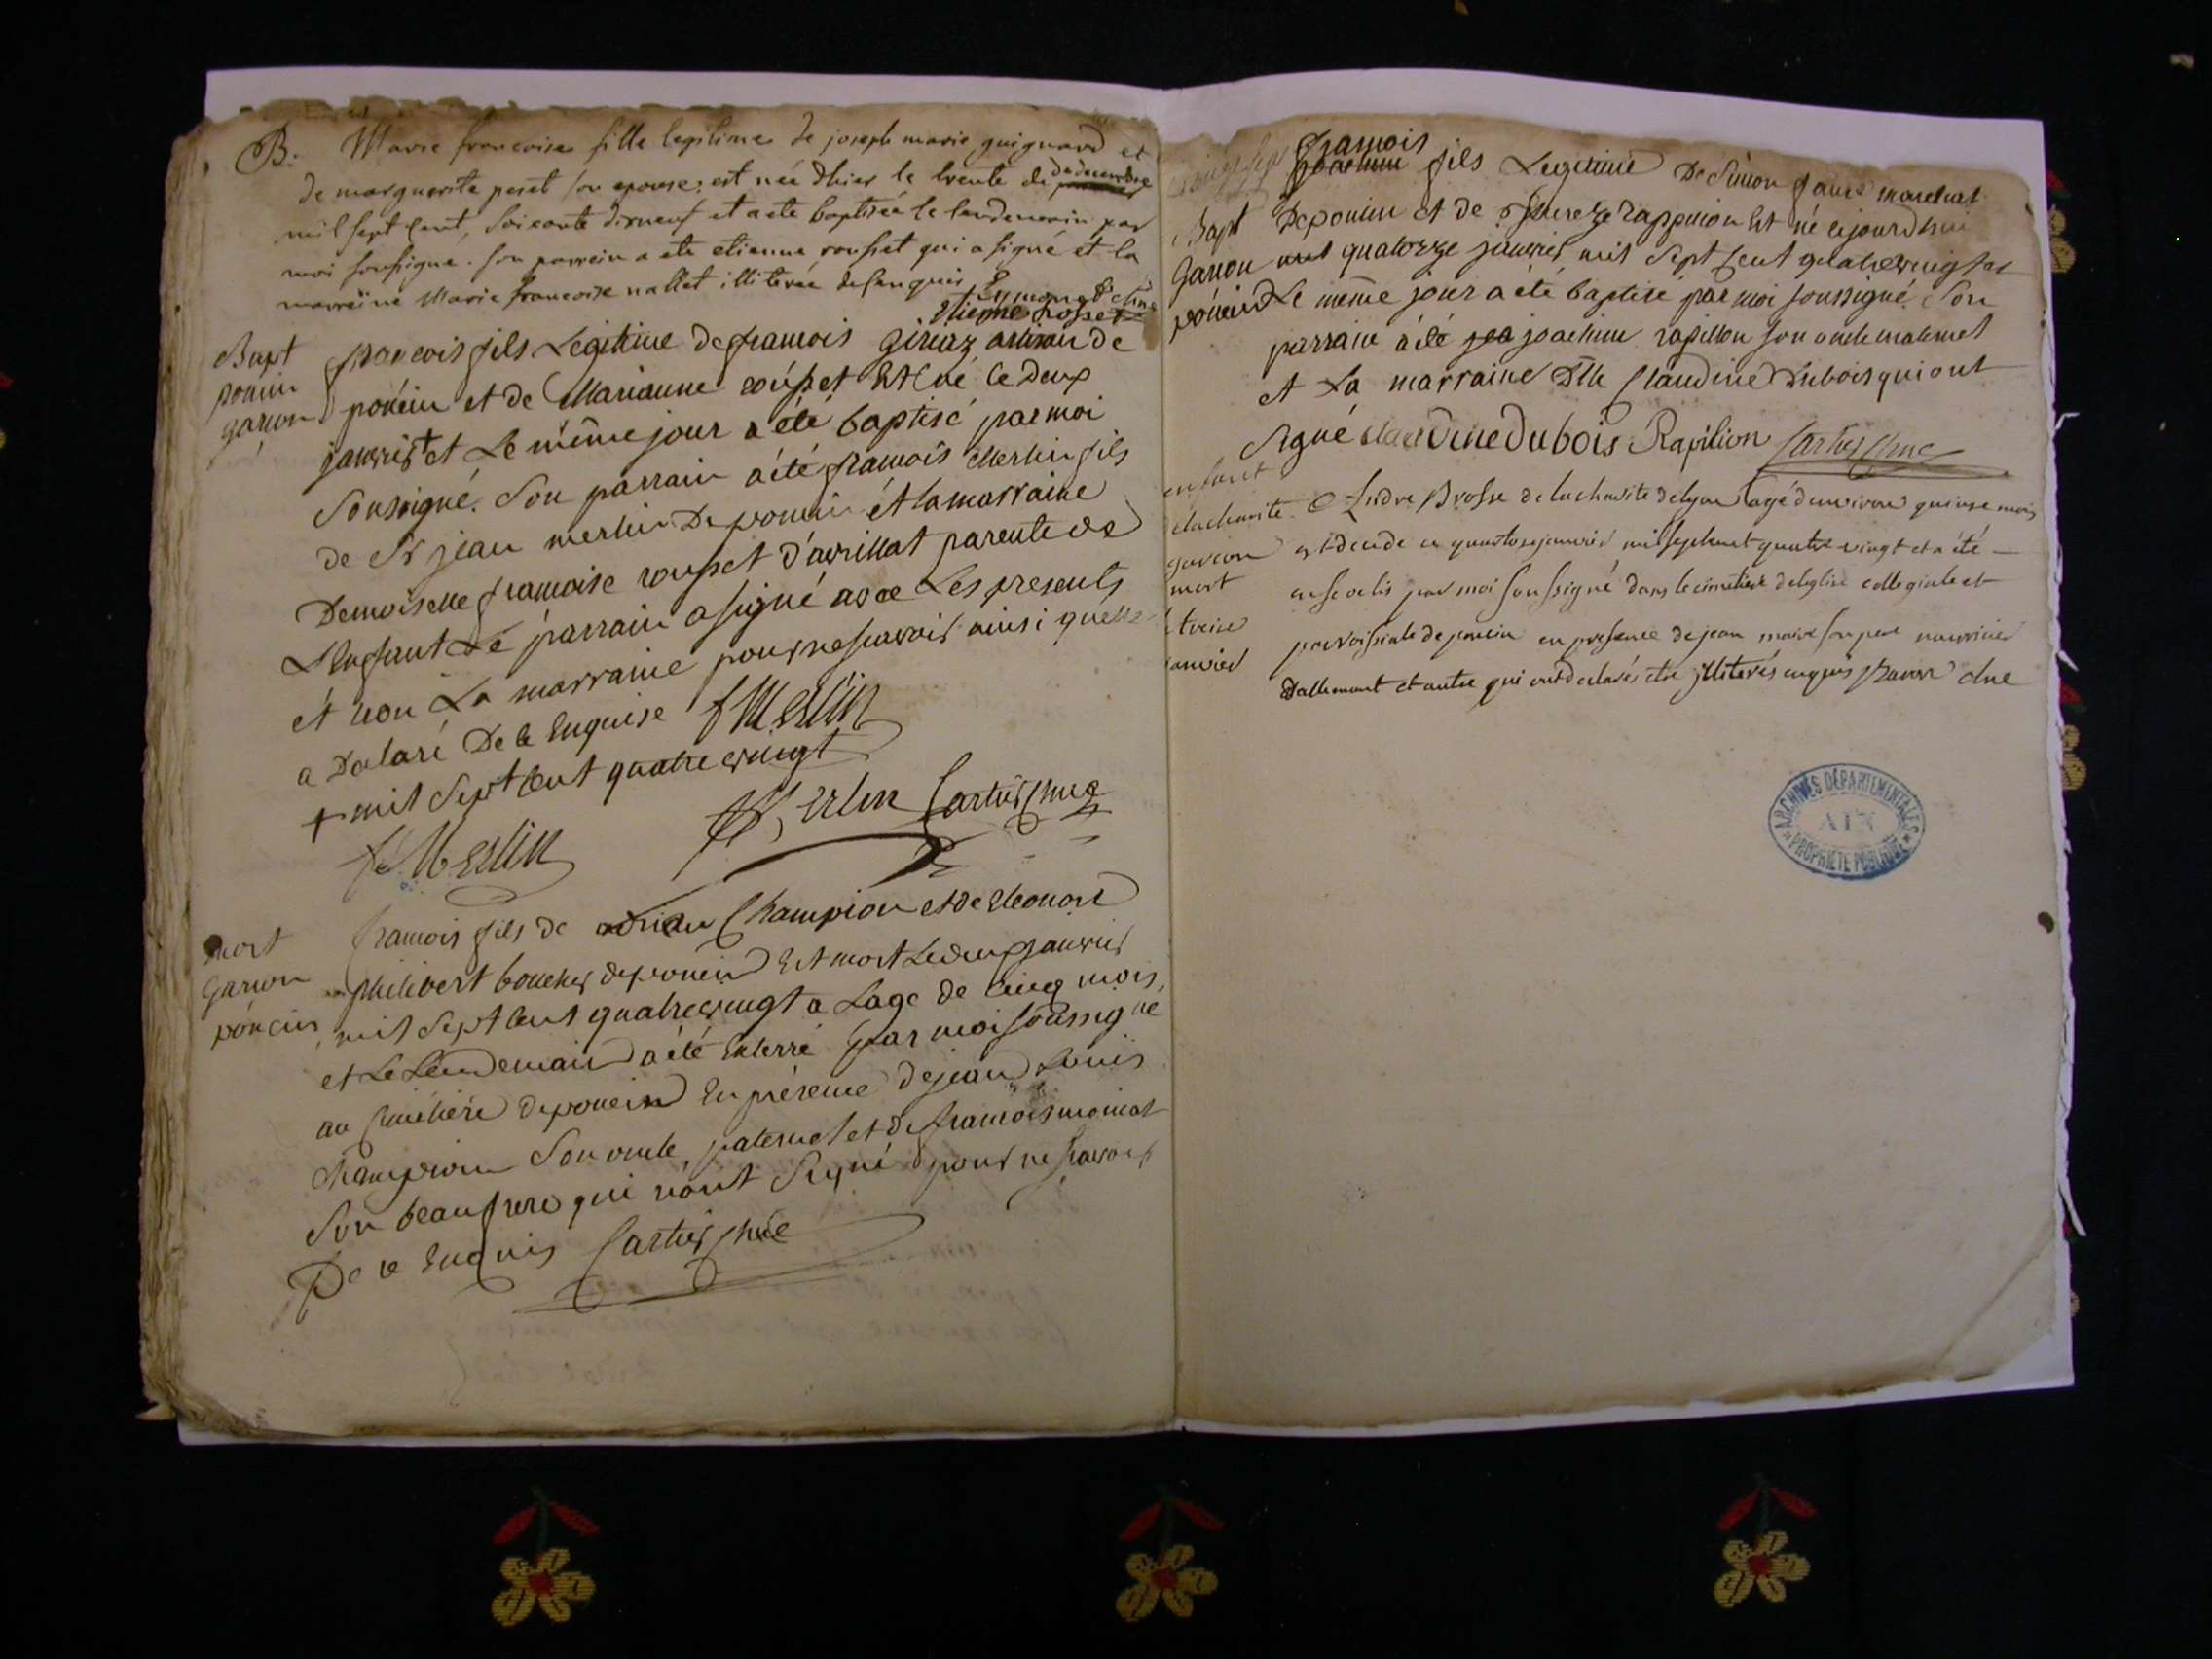 B. Marie francoise fille legitime de joseph marie guignard et
de marguerite peset son epouse, est née d'hier le trente de decembre
mil sept cent, soixante dixneuf et a ete baptisée le lendemain par
moi soussigné. son parrein a ete etienne rousset qui a signé et la
marreine Marie francoise nallet illiterée de se enquis
etienne rosset
Bapt
poncin
garçon
francois fils Legitime de francois giriaz artisan de
poncin et de Marianne rousset Est né le deux
janvier + et Le même jour a été baptisé par moi
Soussigné. Son parrain a été françois Merlin fils
de Sr jean merlin De poncin et la marraine
Demoiselle francoise rousset d'avrillat parente de
L'enfant Le parrain a signé avec Les presents
et non La marraine pour ne scavoir ainsi quelle
a Declaré De ce Enquise f Merlin
+ mil Sept Cent quatre vingt
f. Merlin Merlin Cartier chne
mort
garcon
poncin
francois fils de adrian Champion et de Eleonore
philibert boucher de poncin Est mort Le deux janvier
mil Sept Cent quatre vingt a Lage de Cinq mois,
et Le Lendemain a été Enterré par moi soussigné
au Cimetière de poncin En présence de jean Louis
Champion Son oncle paternel et de francois moinat
Son beaufrere qui n'ont Signé pour ne scavoir
De ce Enquis Cartier chne
francois
joachim fils Legitime De Simon faure marechal
Bapt
Garcon
poncin
De poncin et de Thereze rappillon Est né cejourdhui
quatorze janvier mil Sept Cent quatre vingt et
Le même jour a été baptisé par moi soussigné. Son
parrain a été joachim rapillon son oncle maternel
et La marraine Dlle Claudine Dubois qui ont
Signé claudine Dubois Rapilion Cartier Chne
enfant
de la charite
garcon
mort
treise
janvier
Andre Brosse de la charite de lyon agé d'environ quinse mois
est decede ce quatorse janvier mil sept cent quatre vingt et a été
ensevelis par moi soussigné dans le cimetiere de leglise collegiale et
parroissiale de poncin en presence de jean maire son pere nourricier
d'allement et autre qui ont declarés etre illiterés enquis chne
ARCHIVES DÉPARTEMENTALES
AIN
PROPRIÉTÉ PUBLIQUE